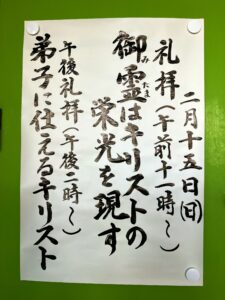 二月十五日(日)
礼拝(午前十一時〜)
御霊はキリストの
みたま
栄光を現す
午後礼拝(午後二時〜)
弟子に仕えるキリスト